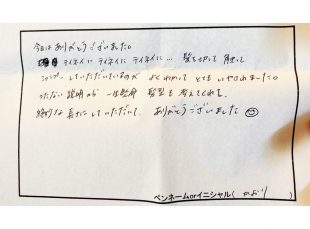 今日はありがとうございました。
テイネイに テイネイに テイネイに… 髪を切って 触って
シャンプーしていただいているのが よくわかって とても いやされました。
つたない説明から 一生懸命 髪型も 考えてくれて、
絶妙な 長さにしていただいて、 ありがとうございました
ペンネームorイニシャル( かおり )